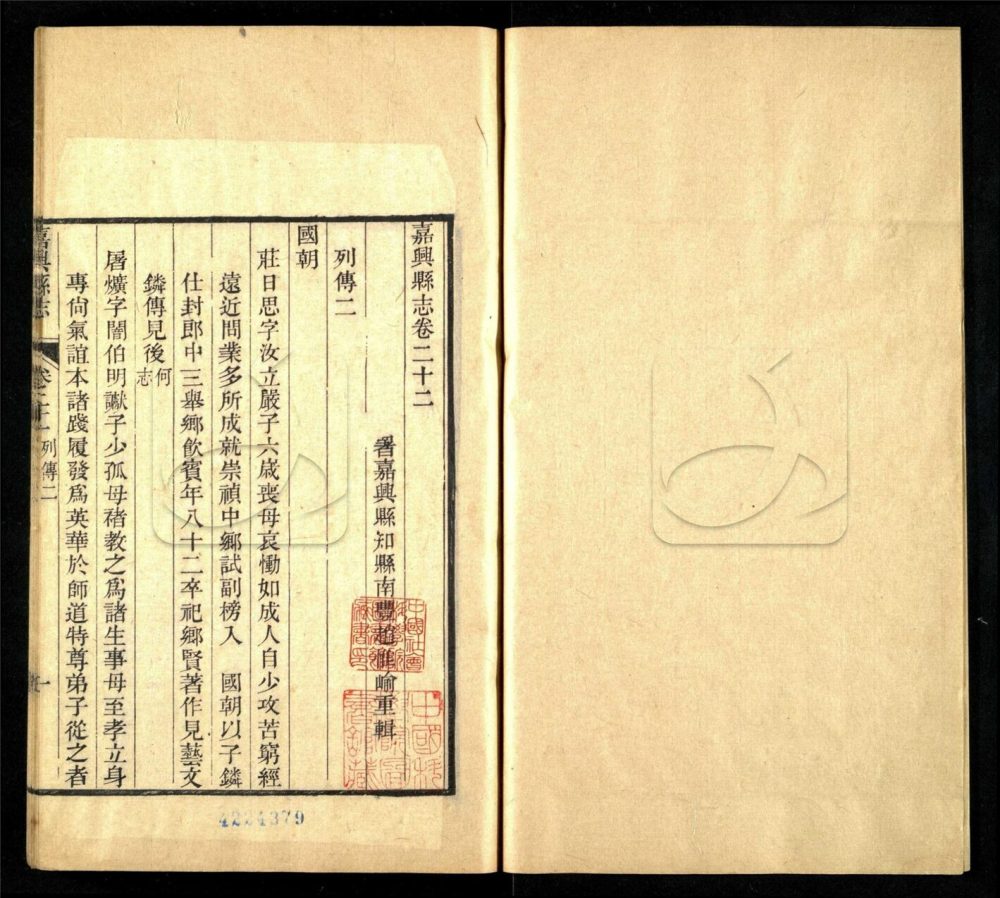 嘉興縣志卷二十二
署嘉興縣知縣南豐趙惟崳重輯
列傳二
國朝
莊日思字汝立嚴子六歲喪母哀慟如成人自少攻苦窮經
遠近問業多所成就崇禎中鄉試副榜入　國朝以子鏻
仕封郎中三舉鄉飲賓年八十二卒祀鄉賢著作見藝文
鏻傳見後何志
屠爌字闇伯明獻子少孤母褚教之爲諸生事母至孝立身
專尙氣誼本諸踐履發爲英華於師道特尊弟子從之者
嘉興縣志
卷二十二
列傳二
一
4224379